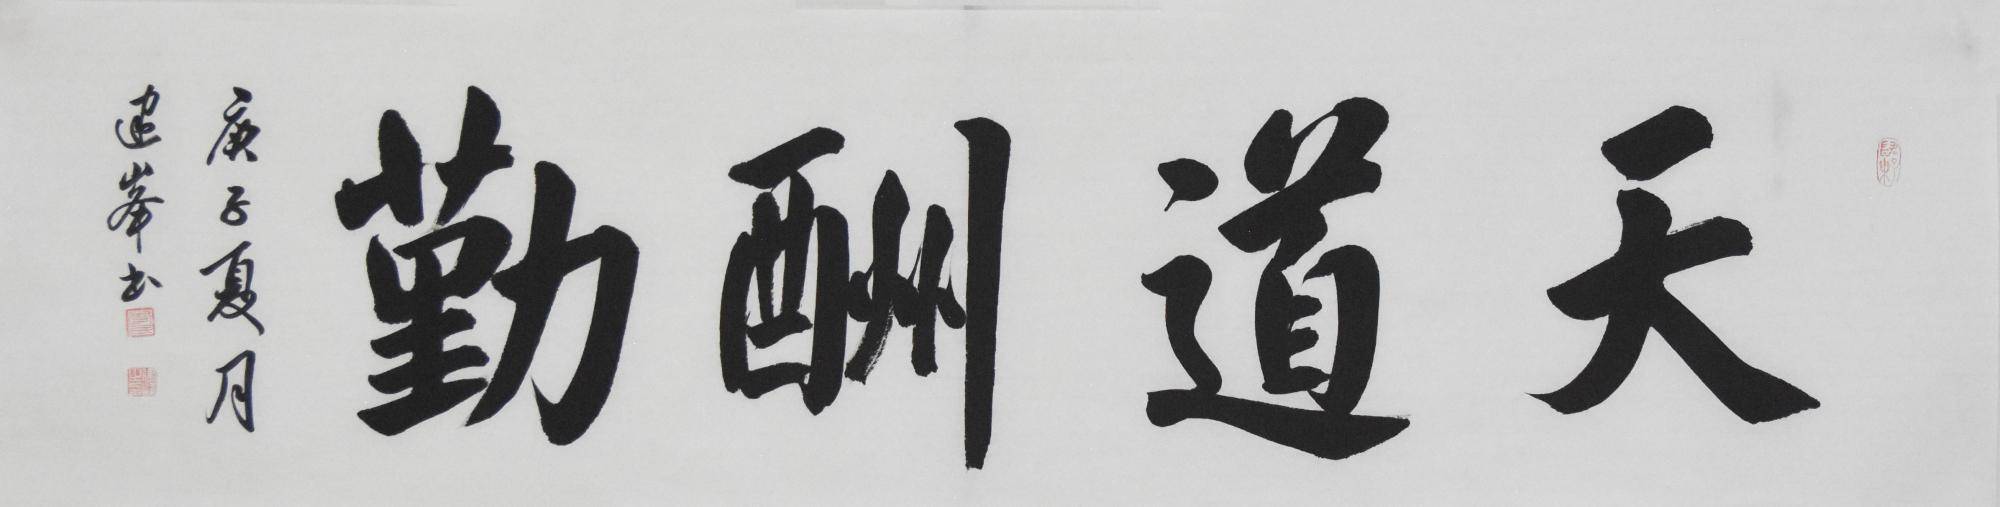 天道酬勤
庚子夏月
建峯书